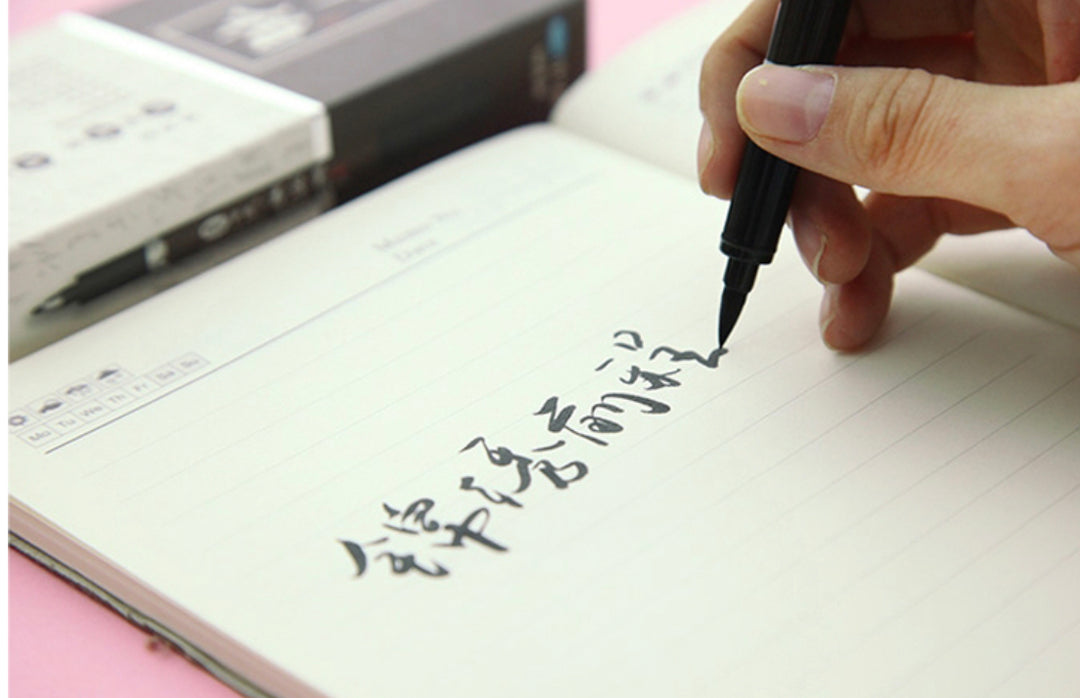 Memo No.
Date
Mo Tu We Th Fr Sa Su
锦绣前程